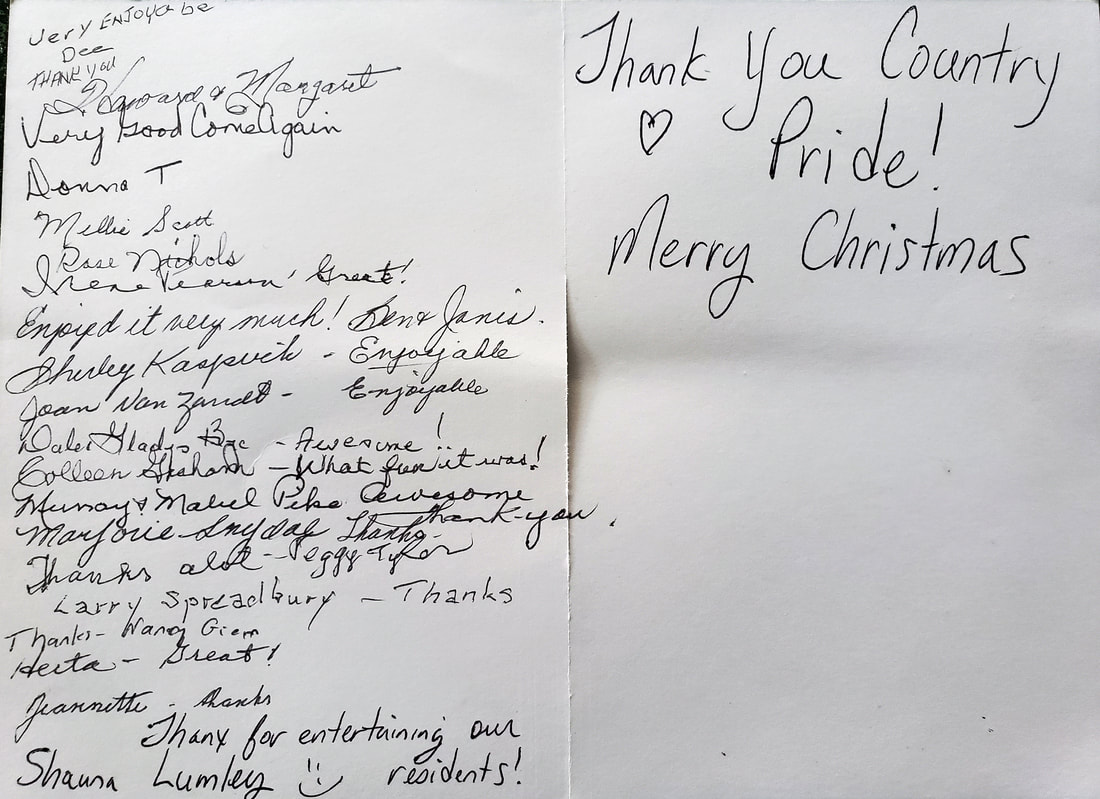 very ENJOYabe
Dee
THANK YOU
Howard & Margaret
Very Good Come Again
Donna T
Millie Scott
Rose Nichols
Irene Pearson Great!
Enjoyed it very much! Ben & Janis.
Shirley - Enjoyable
Joan Van Zandt - Enjoyable
Dale & Gladys - Awesome!
Colleen Graham - What fun it was!
Murray & Mabel Pike Awesome
Thank-you.
Marjorie Thanks-
Thanks alot - Peggy Tyler
Larry Spreadbury - Thanks
Thanks - Nancy Giem
Herta - Great!
Jeannette - thanks
Thanx for entertaining our
Shauna Lumley residents!
Thank You Country
Pride!
Merry Christmas